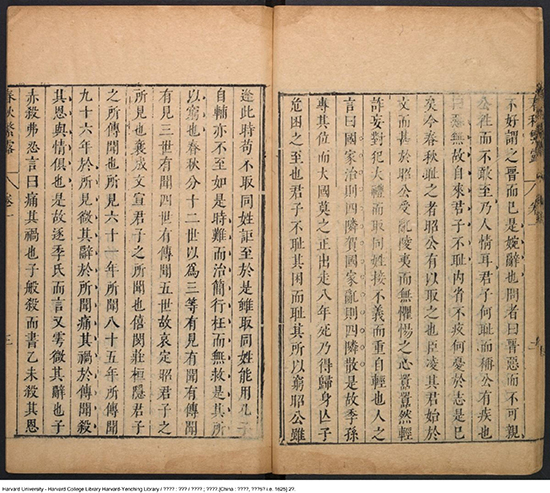 不好謂之晉而已是婉辭也問者曰晉惡而不可親
公往而不敢至乃人情耳君子何耻而稱公有疾也
曰惡無故自來君子不耻内省不疚何憂於志是已
矣今春秋耻之者昭公有以取之也臣陵其君始於
文而甚於昭公受亂陵夷而無懼惕之心囂囂然輕
詐妄討犯大禮而取同姓接不義而重自輕也人之
言曰國家治則四隣賀國家亂則四隣散是故季孫
專其位而大國莫之正出走八年死乃得歸身亡子
危困之至也君子不耻其困而耻其所以窮昭公雖
逢此時苟不取同姓詎至於是雖取同姓能用孔子
自輔亦不至如是時難而治簡行枉而無救是其所
以窮也春秋分十二世以爲三等有見有聞有傳聞
有見三世有聞四世有傳聞五世故哀定昭君子之
所見也襄成文宣君子之所聞也僖閔莊桓隱君子
之所傳聞也所見六十一年所聞八十五年所傳聞
九十六年於所見微其辭於所聞痛其禍於傳聞殺
其恩與情俱也是故逐季氏而言又雩微其辭也子
赤殺弗忍言曰痛其禍也子般殺而書乙未殺其恩
春秋繁露 卷一 三
Harvard University - Harvard College Library Harvard-Yenching Library / ???? : ??? / ???? ; ???? [China : ????, ???5? i.e. 1625] 27.